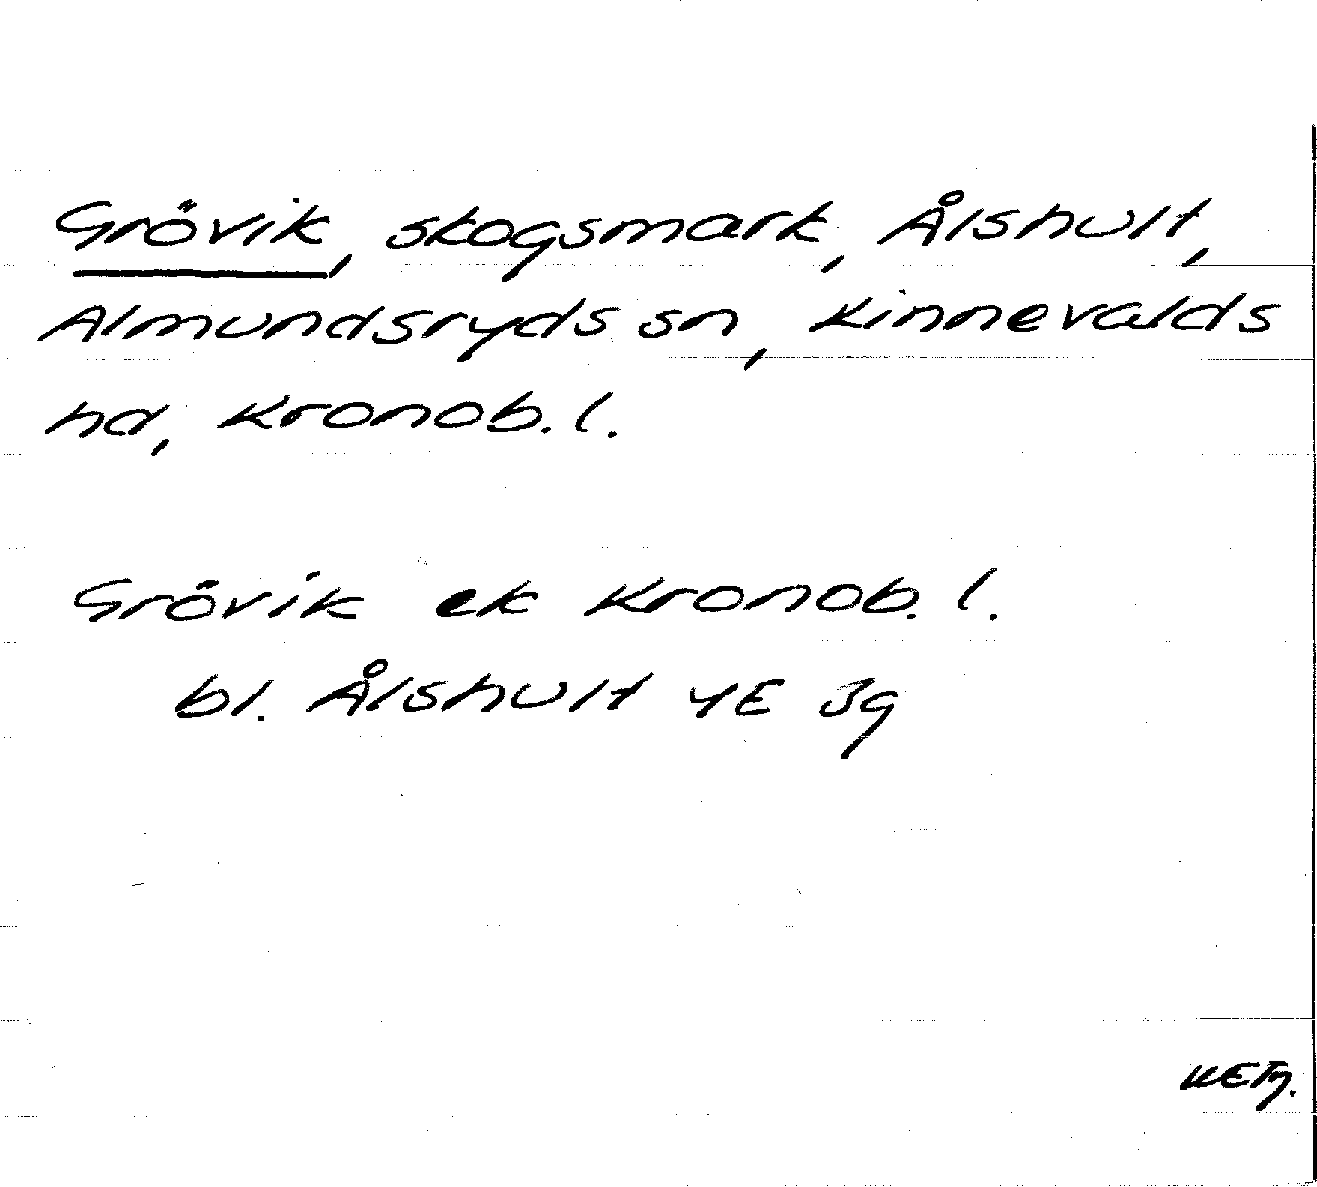 Grövik, skogsmark, Ålshult,
Almundsryds sn, Kinnevalds
hd, Kronob. l.
Grövik ek Kronob. l.
bl. Ålshult 4E 3g